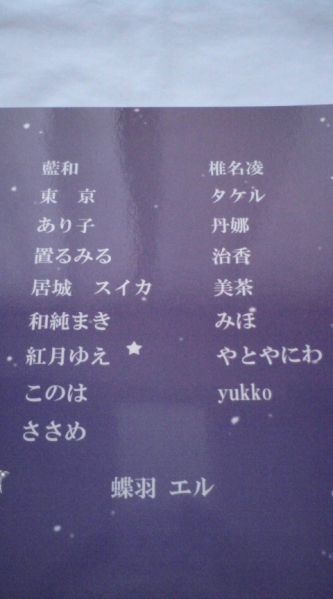 藍和
東　京
あり子
置るみる
居城　スイカ
和純まき
紅月ゆえ
このは
ささめ
椎名凌
タケル
丹娜
治香
美茶
みほ
やとやにわ
yukko
蝶羽 エル